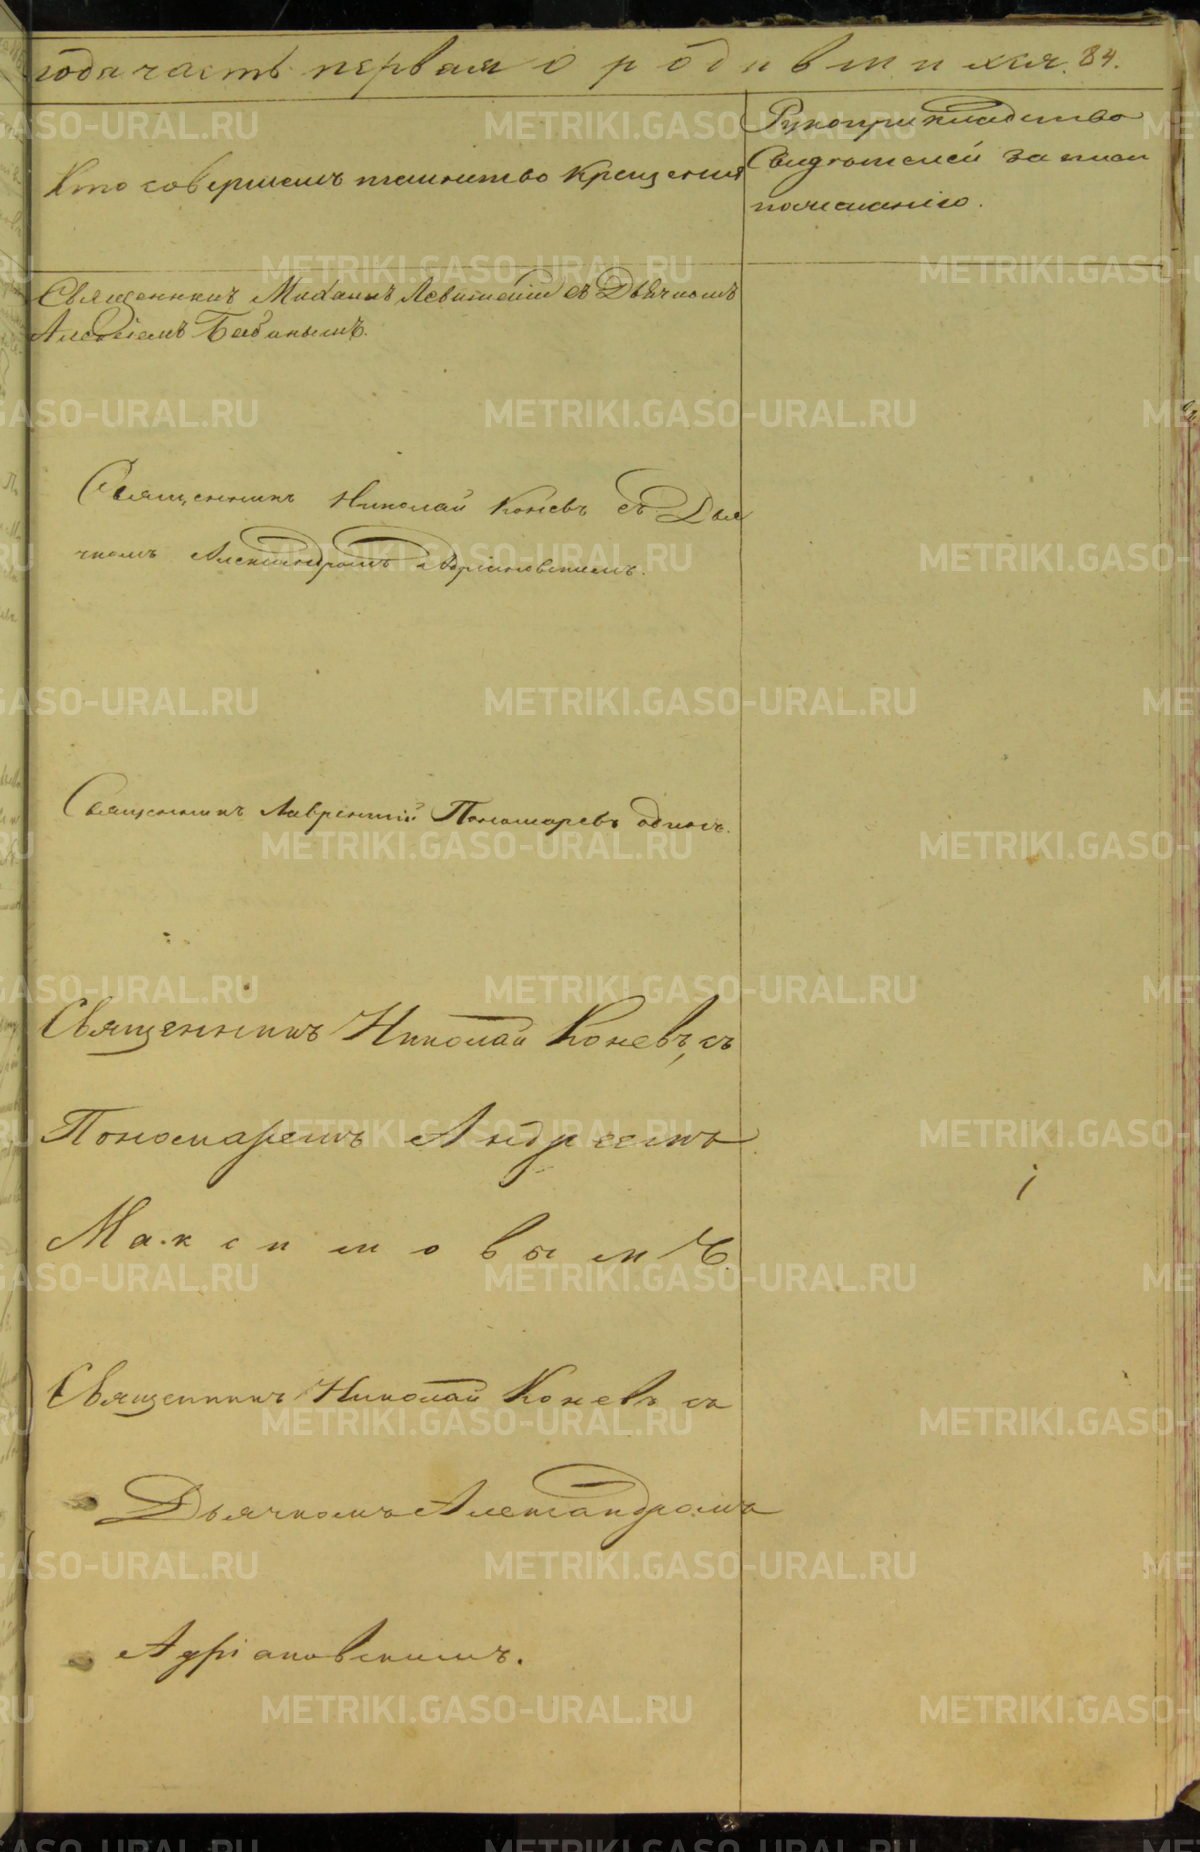 года часть первая о родившихся. 84.
Кто совершалъ таинство крещенія
Рукоприкладство
Свидѣтелей записи
по желанію.
Священникъ Михаилъ Левитскій съ Дьячкомъ
Алексѣемъ Бабинымъ.
Священникъ Николай Коневъ съ Дья
чкомъ Александромъ Адріановскимъ.
Священникъ Лаврентій Пономаревъ одинъ.
Священникъ Николай Коневъ, съ
Пономаремъ Андреемъ
Максимовымъ.
Священникъ Николай Коневъ съ
Дьячкомъ Александромъ
Адріановскимъ.
METRIKI.GASO-URAL.RU